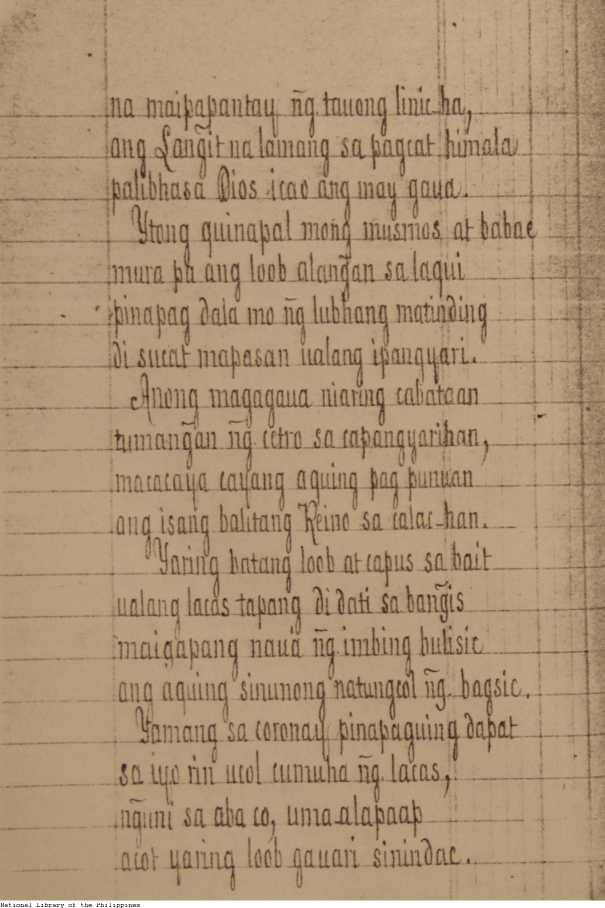 na maipapantay ñg tauong linic ha,
ang Lang̃it na lamang sa pagcat himala
palibhasa Dios icao ang may gaua.
Ytong quinapal mong musmos at babae
mura pa ang loob alang̃an sa laqui
pinapag dala mo ñg lubhang matinding
di sucat mapasan ualang ipangyari.
Anong magagaua niaring cabataan
tumang̃an ñg cetro sa capangyarihan,
macacaya cayang aquing pag punuan
ang isang balitang Reino sa calac-han.
Yaring batang loob at capus sa bait
ualang lacas tapang di dati sa bang̃is
maigapang naua ñg imbing bulisic
ang aquing sinunong natungcol ñg bagsic.
Yamang sa coronay pinapaguing dapat
sa iyo rin ucol cumuha ñg lacas,
ñguni sa aba co, uma-alapaap
acot yaring loob gauari sinindac.
National Library of the Philippines